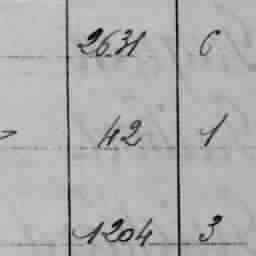 2631 6
42 1
1204 3